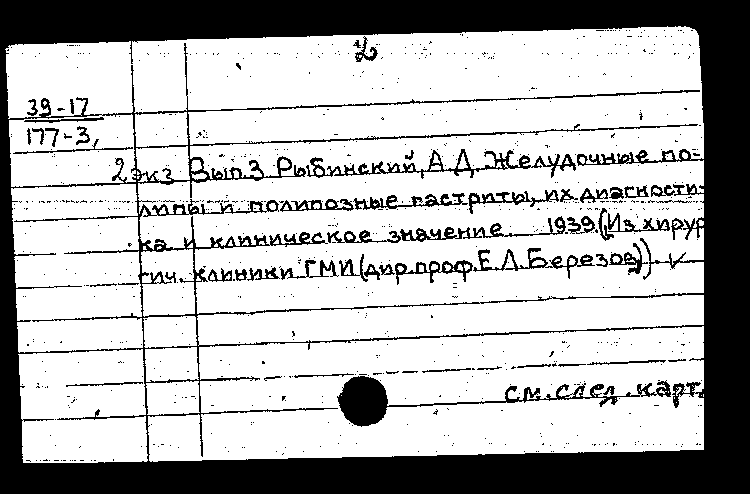 2
39-17
177-3,
2 экз Вып.3 Рыбинский, А.Д. Желудочные по-
липы и полипозные гастриты, их диагности-
ка и клиническое значение. 1939. (Из хирур
гич. клиники ГМИ (дир. проф. Е.Л. Березов)).
см. след. карт.